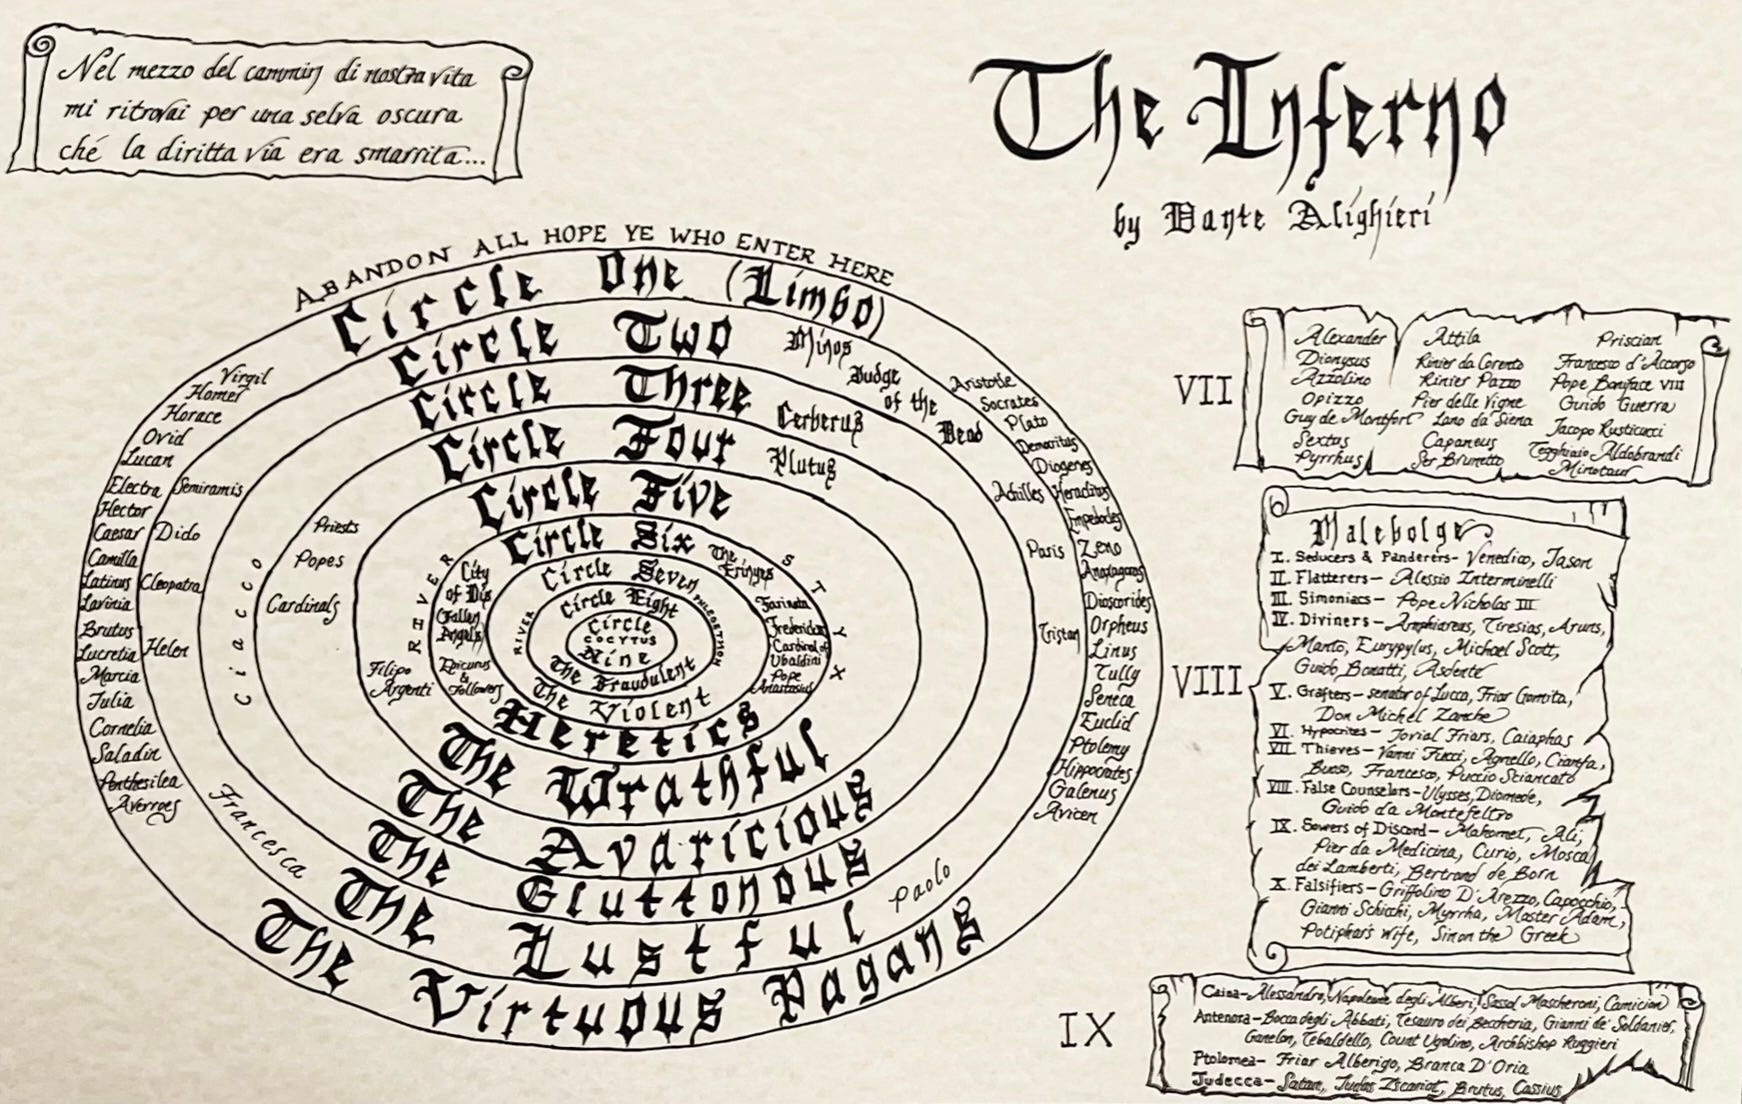 Nel mezzo del cammin di nostra vita
mi ritrovai per una selva oscura
ché la diritta via era smarrita...
The Inferno
by Dante Alighieri
ABANDON ALL HOPE YE WHO ENTER HERE
Circle One (Limbo)
Virgil
Homer
Horace
Ovid
Lucan
Electra
Hector
Caesar
Camilla
Latinus
Lavinia
Brutus
Lucretia
Marcia
Julia
Cornelia
Saladin
Penthesilea
Averroes
Aristotle
Socrates
Plato
Democritus
Diogenes
Heraclitus
Empedocles
Zeno
Anaxagoras
Dioscorides
Orpheus
Linus
Tully
Seneca
Euclid
Ptolemy
Hippocrates
Galenus
Avicen
The Virtuous Pagans
Circle Two
Minos
Judge
of the
Dead
Semiramis
Dido
Cleopatra
Helen
Achilles
Paris
Tristan
Francesca
Paolo
The Lustful
Circle Three
Cerberus
Ciacco
The Gluttonous
Circle Four
Plutus
Priests
Popes
Cardinals
The Avaricious
Circle Five
RIVER STYX
Filipo
Argenti
The Wrathful
Circle Six
The
Erinyes
City
of Dis
Fallen
Angels
Epicurus
&
Followers
Farinata
Frederick
Cardinal of
Ubaldini
Pope
Anastasius
Heretics
Circle Seven
RIVER PHLEGETHON
The Violent
Circle Eight
The Fraudulent
Circle
COCYTUS
Nine
VII
Alexander
Dionysus
Azzolino
Opizzo
Guy de Montfort
Sextus
Pyrrhus
Attila
Rinier da Corento
Rinier Pazzo
Pier delle Vigne
Lano da Siena
Capaneus
Ser Brunetto
Priscian
Francesco d'Accorso
Pope Boniface VIII
Guido Guerra
Jacopo Rusticucci
Tegghiaio Aldobrandi
Minotaur
VIII
Malebolge
I. Seducers & Panderers- Venedico, Jason
II. Flatterers- Alessio Interminelli
III. Simoniacs- Pope Nicholas III
IV. Diviners- Amphiareas, Tiresias, Aruns,
Manto, Eurypylus, Michael Scott,
Guido Bonatti, Asdente
V. Grafters- senator of Lucca, Friar Gomita,
Don Michel Zanche
VI. Hypocrites- Jovial Friars, Caiaphas
VII. Thieves- Vanni Fucci, Agnello, Cianfa,
Buoso, Francesco, Puccio Sciancato
VIII. False Counselors-Ulysses, Diomede,
Guido da Montefeltro
IX. Sowers of Discord- Mahomet, Ali,
Pier da Medicina, Curio, Mosca
dei Lamberti, Bertrand de Born
X. Falsifiers- Griffolino D'Arezzo, Capocchio,
Gianni Schicchi, Myrrha, Master Adam,
Potiphar's Wife, Sinon the Greek
IX
Caina-Alessandro, Napoleone degli Alberi, Sassol Mascheroni, Camicion
Antenora-Bocca degli Abbati, Tesauro dei Beccheria, Gianni de' Soldanier,
Ganelon, Tebaldello, Count Ugolino, Archbishop Ruggieri
Ptolomea- Friar Alberigo, Branca D'Oria
Judecca- Satan, Judas Iscariot, Brutus, Cassius